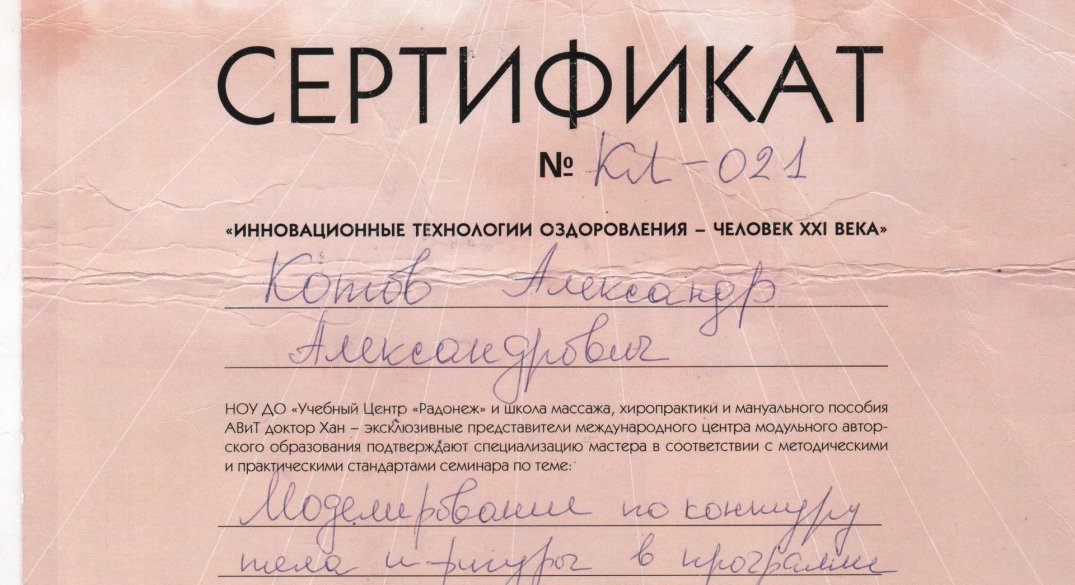 СЕРТИФИКАТ
№ КЛ-021
«ИННОВАЦИОННЫЕ ТЕХНОЛОГИИ ОЗДОРОВЛЕНИЯ – ЧЕЛОВЕК XXI ВЕКА»
Котов Александр
Александрович
НОУ ДО «Учебный Центр «Радонеж» и школа массажа, хиропрактики и мануального пособия
АВиТ доктор Хан – эксклюзивные представители международного центра модульного автор-
ского образования подтверждают специализацию мастера в соответствии с методическими
и практическими стандартами семинара по теме:
Моделирование по контуру
тела и фигуры в программе